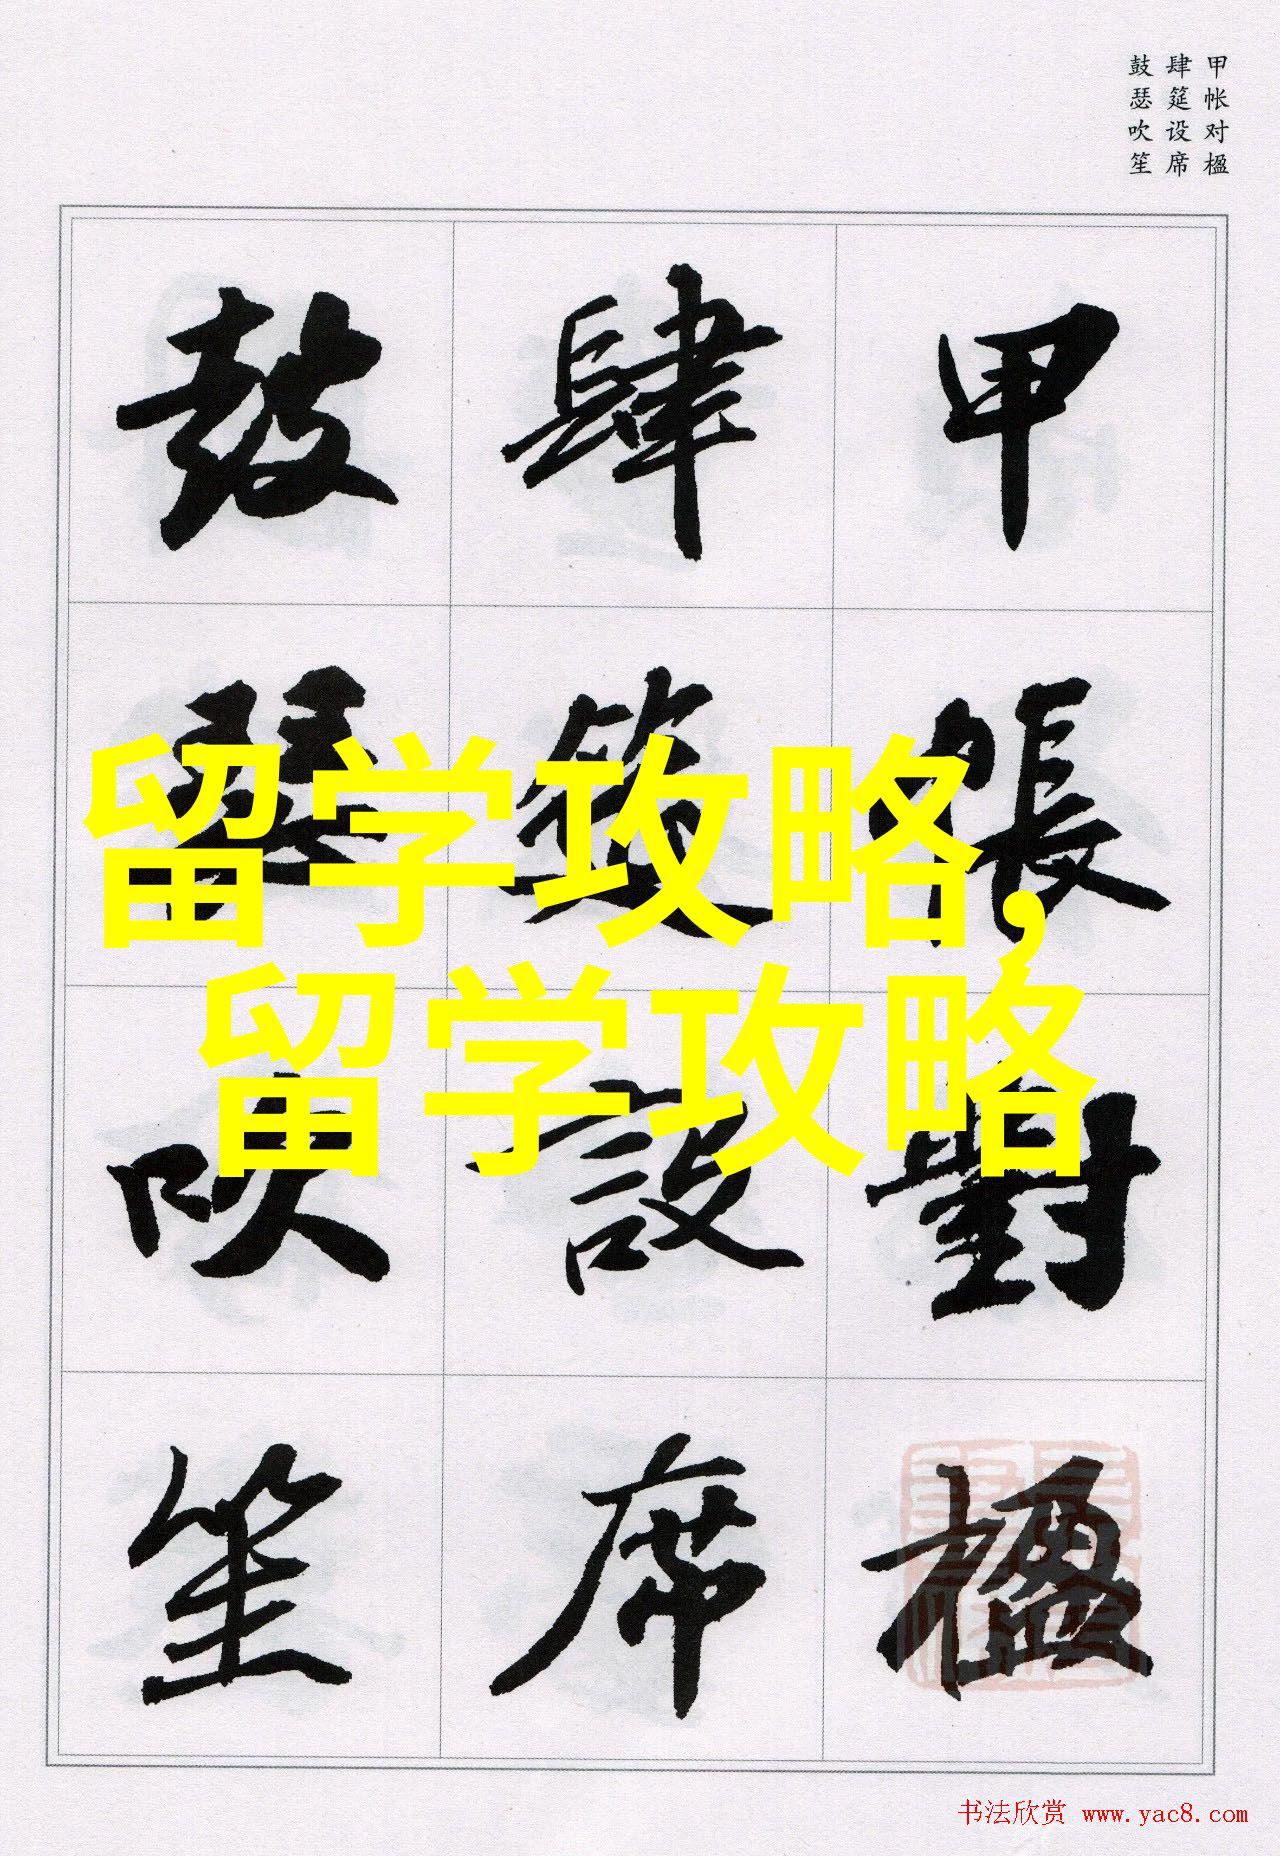 甲帐对楹
肆筵设席
鼓瑟吹笙
甲帳對楹
肆筵設席
鼓瑟吹笙
留学攻略,
留学攻略
书法欣赏 www.yac8.com